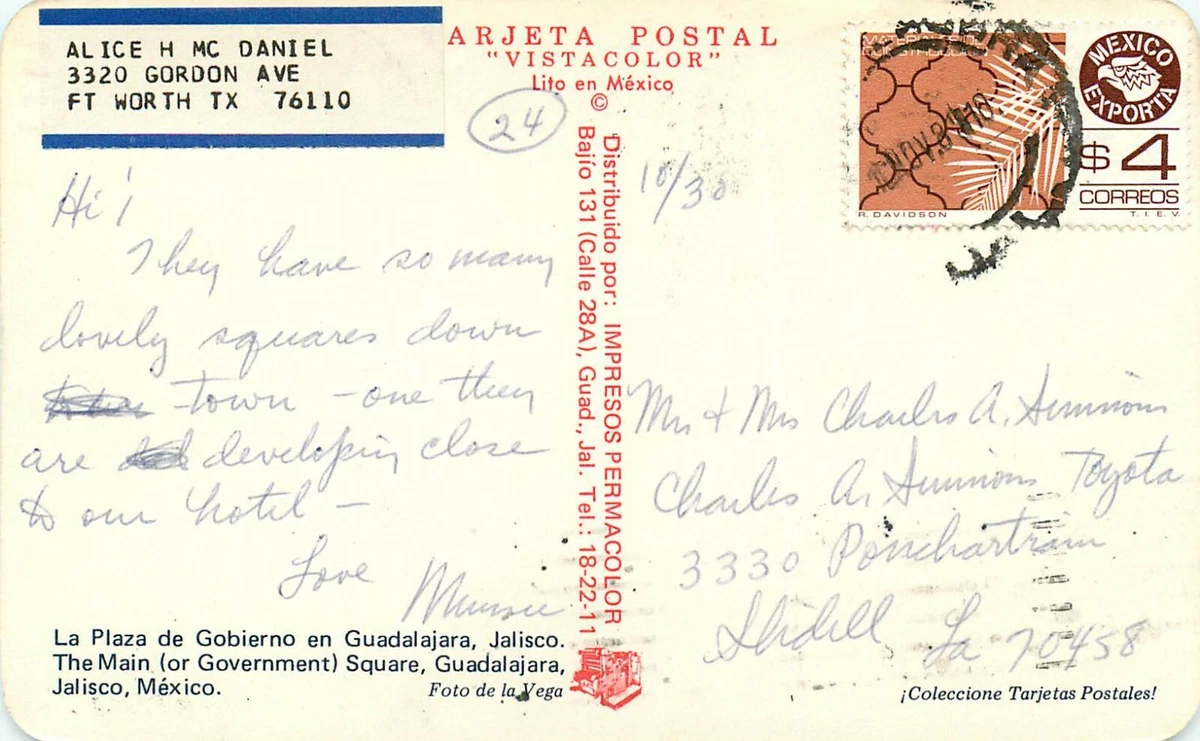 ALICE H MC DANIEL
3320 GORDON AVE
FT WORTH TX 76110
ARJETA POSTAL
"VISTACOLOR"
Lito en México
©
24
Distribuido por: IMPRESOS PERMACOLOR
Bajío 131 (Calle 28A), Guad., Jal. Tel.: 18-22-11
Hi!
They have so many
lovely squares down
town - one they
are developing close
to our hotel -
Love
La Plaza de Gobierno en Guadalajara, Jalisco.
The Main (or Government) Square, Guadalajara,
Jalisco, México.
Foto de la Vega
10/30
MEXICO
EXPORTA
$4
CORREOS
T. I. E. V.
R. DAVIDSON
NOV. 81
Mr + Mrs Charles A. Simmons
Charles A. Simmons Toyota
3330 Ponchartrain
Slidell La 70458
¡Coleccione Tarjetas Postales!